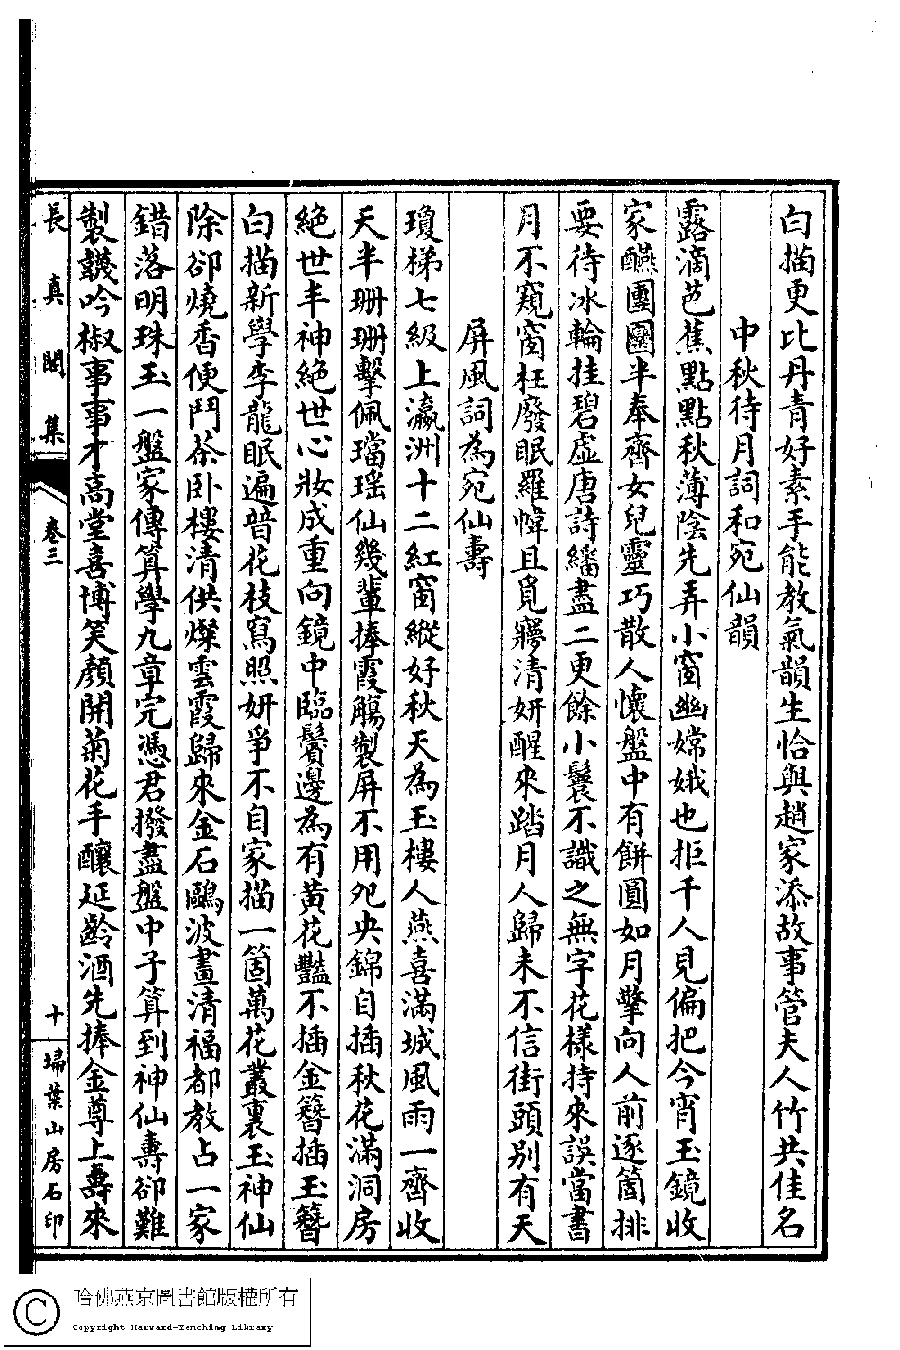 白描更比丹青好素手能教氣韻生恰與趙家添故事管夫人竹共佳名
中秋待月詞和宛仙韻
露滴芭蕉點點秋薄陰先弄小窗幽嫦娥也拒千人見偏把今宵玉鏡收
家醼團圞半奉齊女兒靈巧散人懷盤中有餅圓如月擎向人前逐箇排
要待冰輪挂碧虛唐詩繙盡二更餘小鬟不識之無字花樣持來誤當書
月不窺窗枉廢眠羅幃且覓寱清妍醒來踏月人歸未不信街頭別有天
屏風詞為宛仙壽
瓊梯七級上瀛洲十二紅窗縱好秋天為玉樓人燕喜滿城風雨一齊收
天半珊珊擊佩璫瑶仙幾輩捧霞觴製屏不用夗央錦自插秋花滿洞房
絕世丰神絕世心妝成重向鏡中臨鬢邊為有黃花豔不插金簪插玉簪
白描新學李龍眠遍普花枝寫照妍爭不自家描一箇萬花叢裏玉神仙
除卻燒香便鬥茶卧樓清供燦雲霞歸來金石鷗波畫清福都教占一家
錯落明珠玉一盤家傳算學九章完憑君撥盡盤中子算到神仙壽卻難
製虀吟椒事事才高堂喜博笑顏開菊花手釀延齡酒先捧金尊上壽來
長真閣集
卷三
十
埽葉山房石印
哈佛燕京圖書館版權所有
Copyright Harvard-Yenching Library